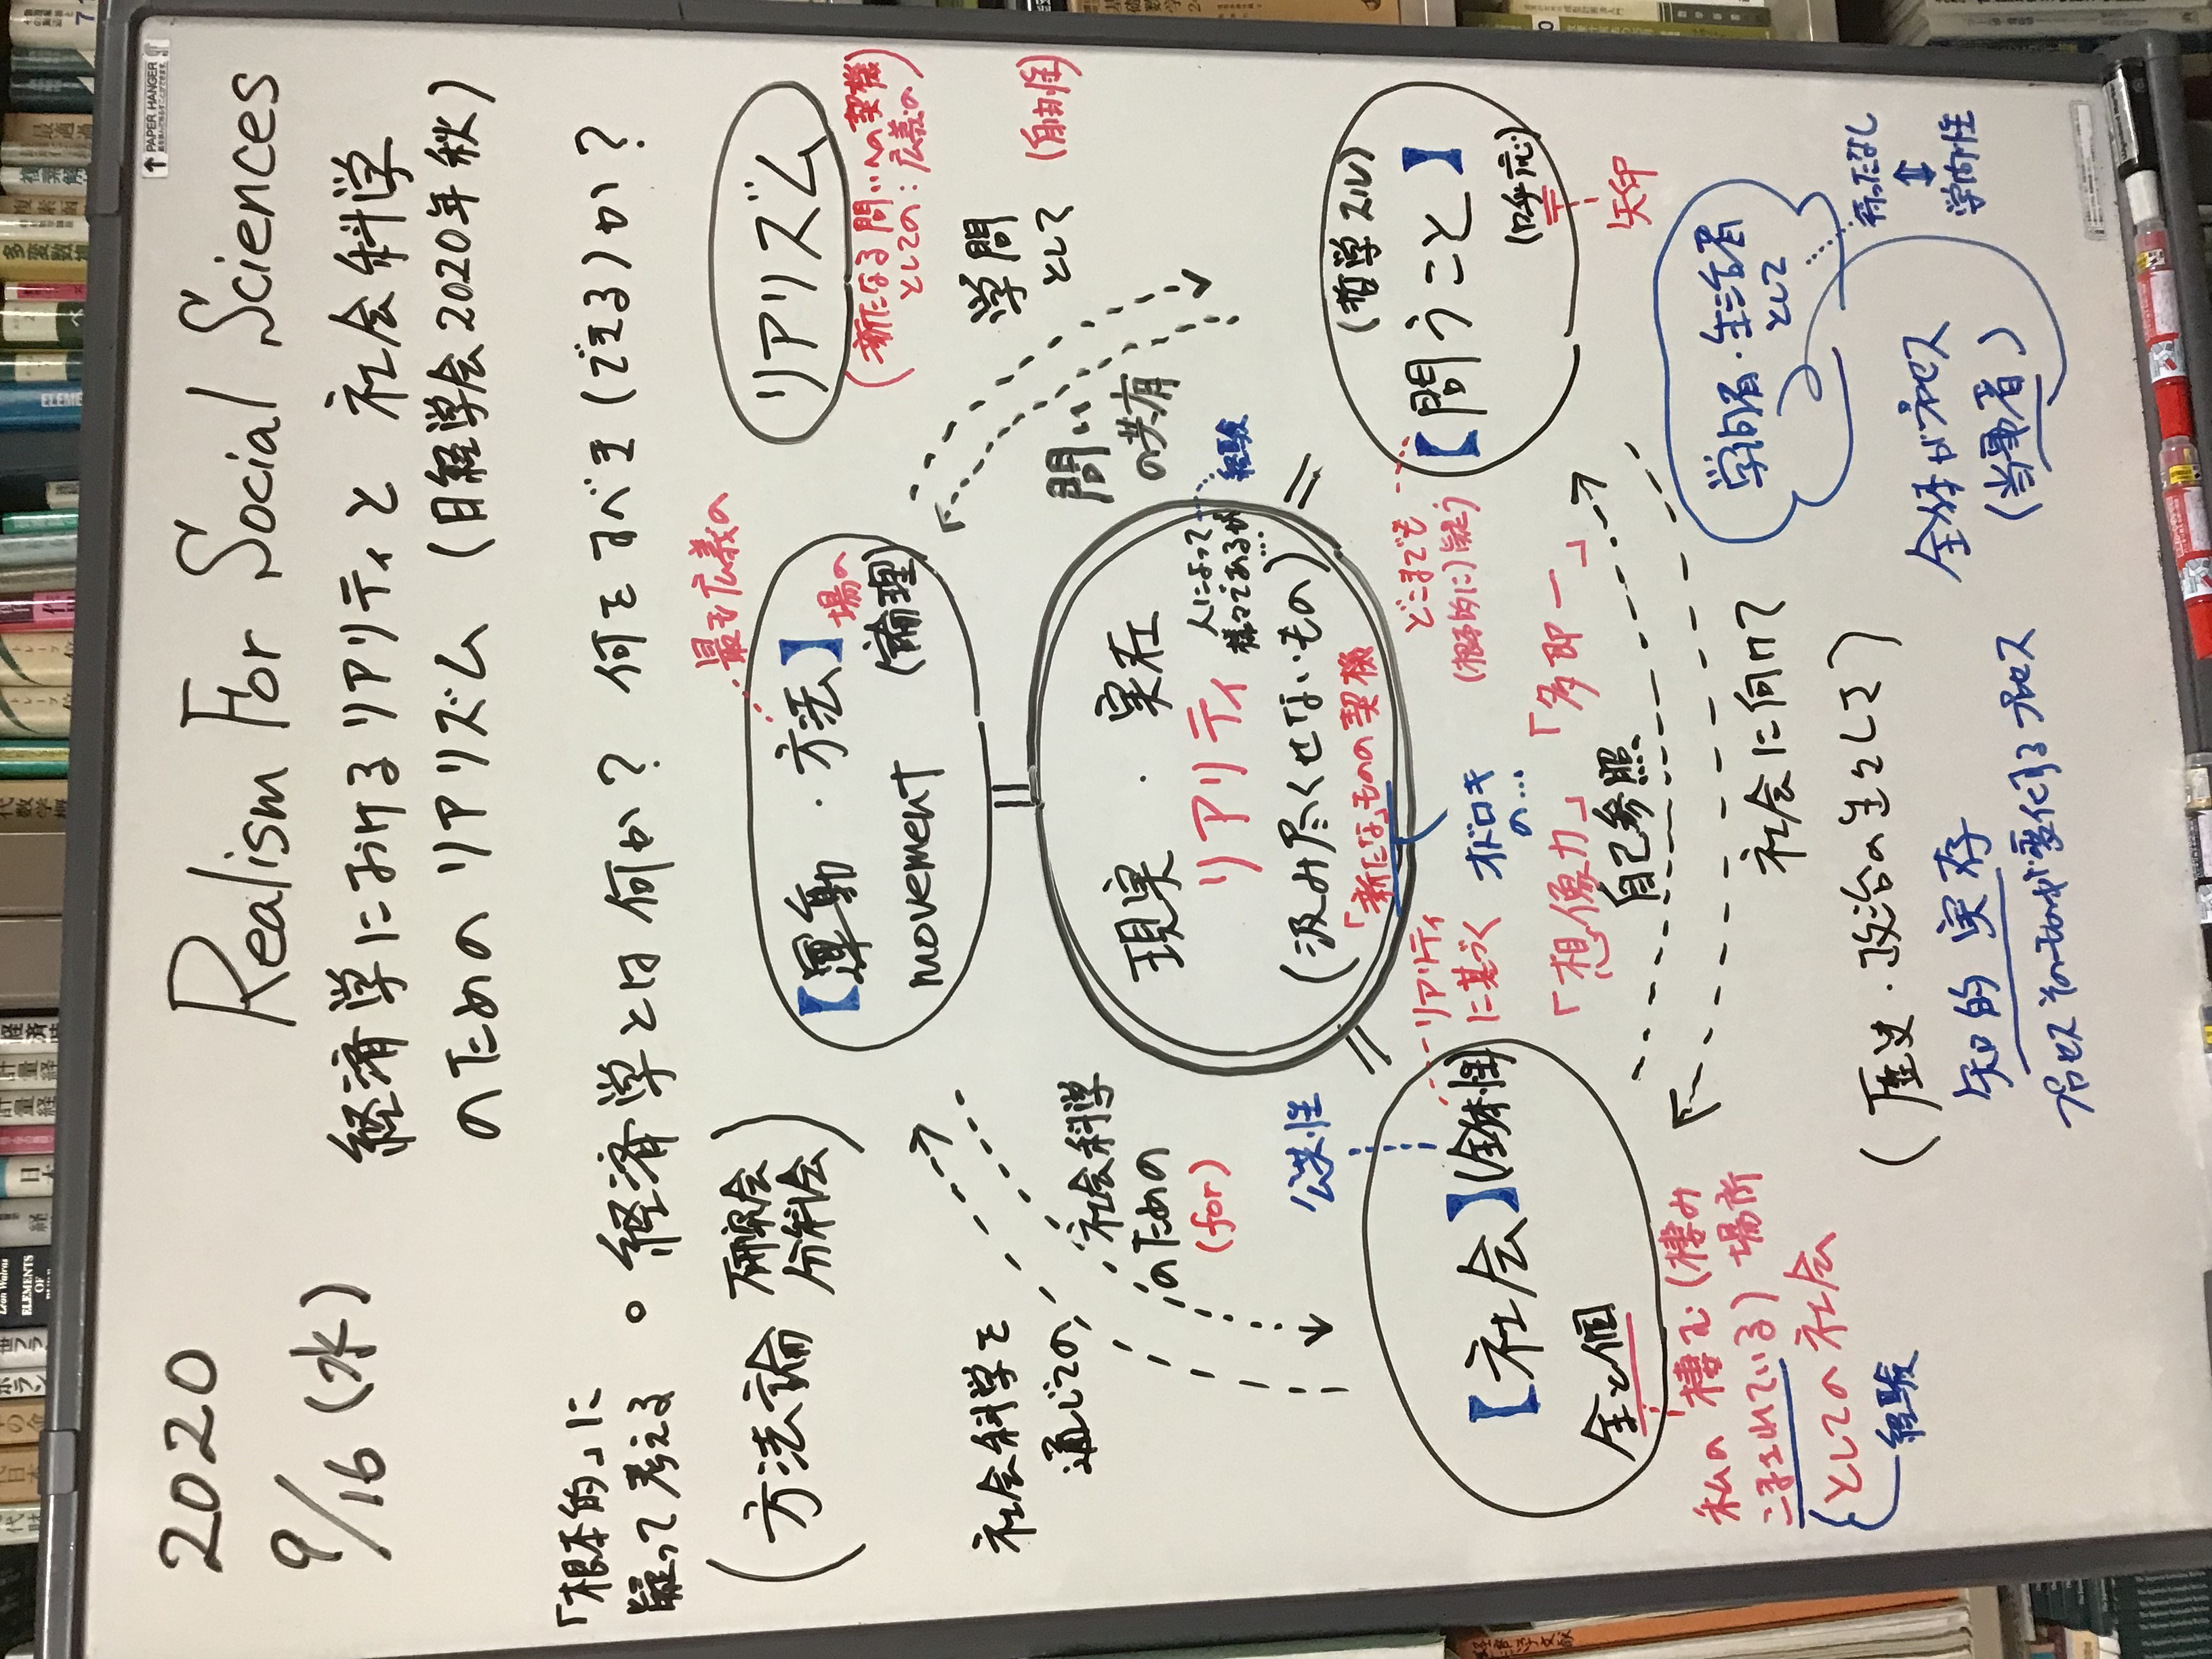 2020
9/16 (水)
Realism For Social Sciences
経済学におけるリアリティと 社会科学
のための リアリズム (日経学会2020年秋)
「根本的」に
疑って考える
。経済学とは何か? 何をすべき(でえる)か?
(方法論 研究会
分科会)
最も広義の
【運動・方法】
場の
movement (論理)
リアリズム
(新たなる問いへの契機
としての:広義の)
社会科学を
通じての
社会科学
のための
(for)
学問
として
(自由性)
問い
の共有
現実・実在
リアリティ
人によって
様々であるが…
経験
(汲み尽くせないもの)
「新たな」ものの契機
オドロキ
の…
公共性
【社会】(全体性)
全と個
リアリティ
に基づく
(哲学スル)
【問うこと】
(呼応)
矢印
どこまでも
(根源的に)疑う
「想像力」「多即一」
自己参照
社会に向けて
(歴史・政治の生として)
私の 棲む(棲み
こまれている) 場所
としての社会
経験
学的者・生活者
として
待ったなし
学問性
全体がプロセス
(当事者)
知的実存
プロセスそのものが変化するプロセス
↑ PAPER HANGER
ELEMENTS
OF